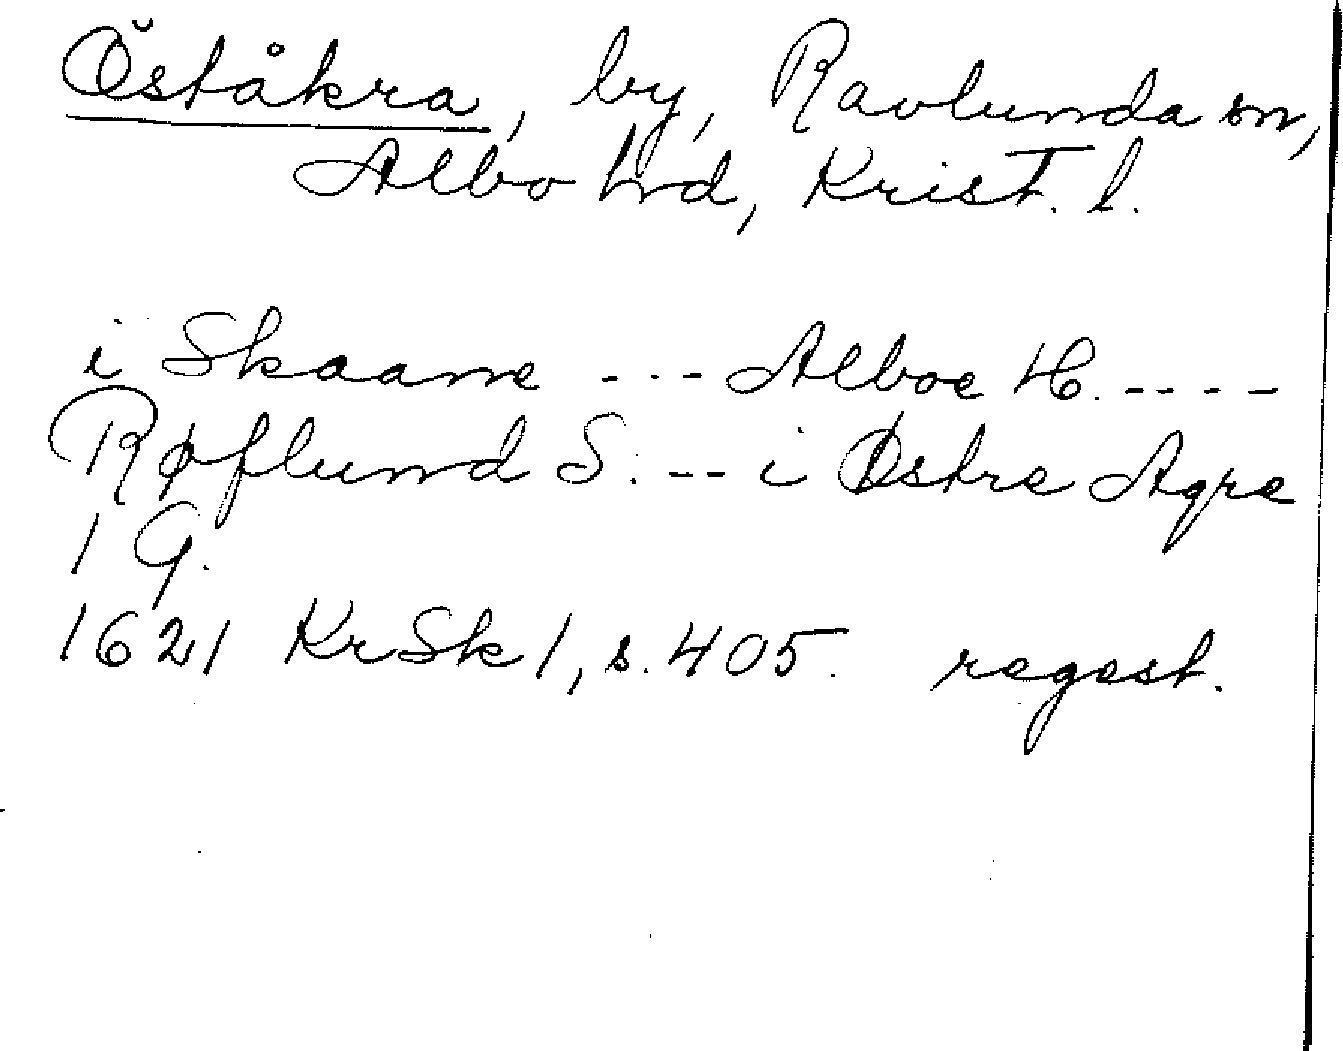 Öståkra, by, Ravlunda sn,
Albo hd, Krist. l.
i Skaane --- Alboe H. ----
Røflund S. -- i Østre Agre
1 G.
1621 KrSk 1, s. 405. regest.